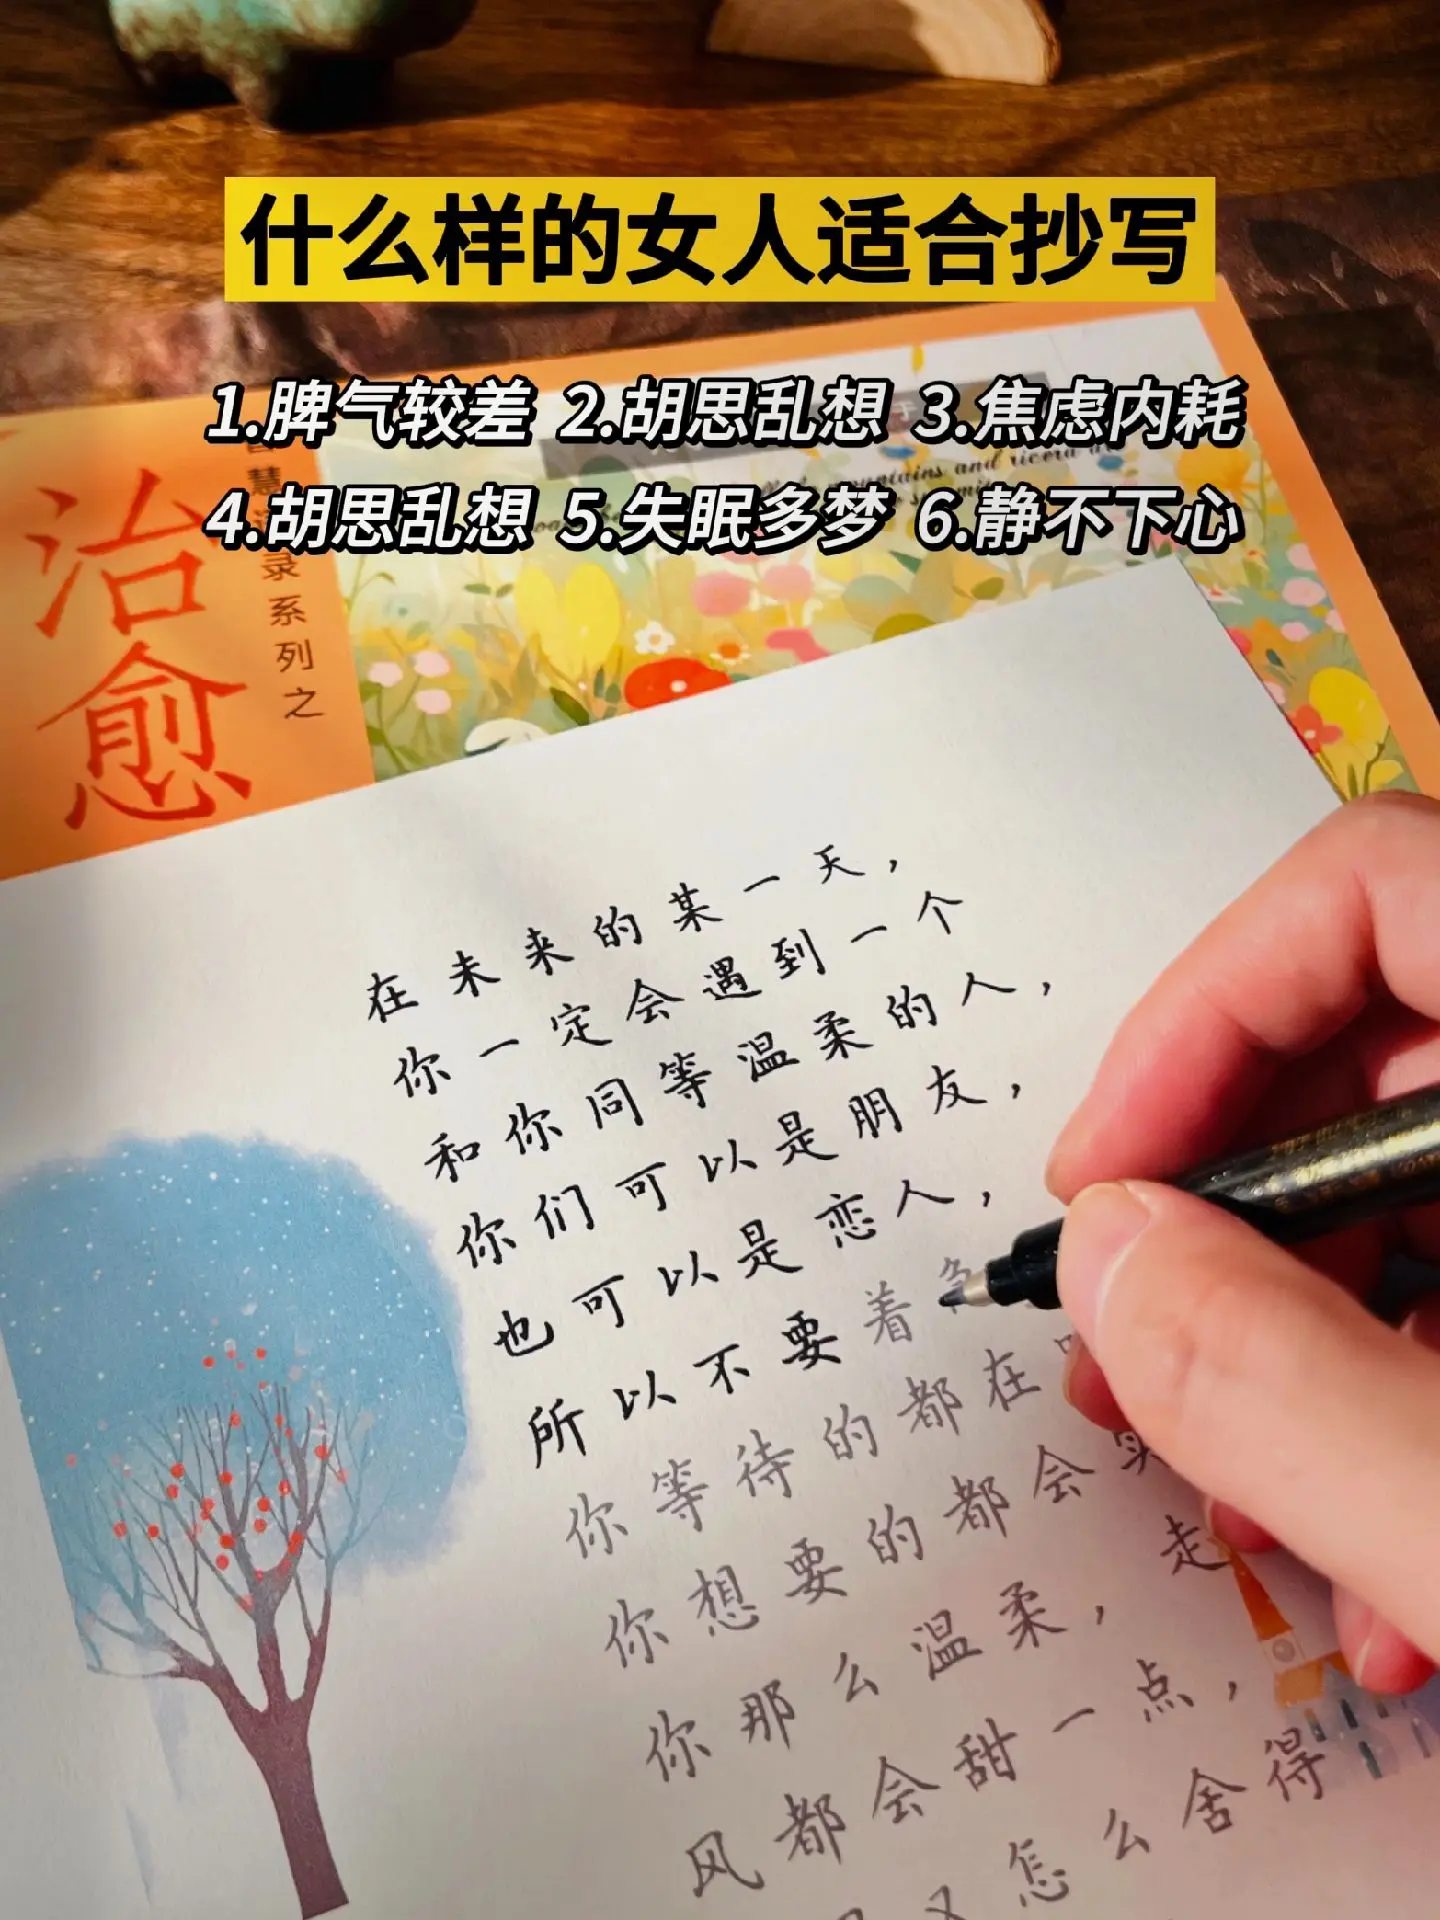 什么样的女人适合抄写
1.脾气较差 2.胡思乱想 3.焦虑内耗
4.胡思乱想 5.失眠多梦 6.静不下心
治愈
慧
录系列之
在未来的某一天，
你一定会遇到一个
和你同等温柔的人，
你们可以是朋友，
也可以是恋人，
所以不要着急
你等待的都在
你想要的都会
你那么温柔，走
风都会甜一点，
又怎么舍得